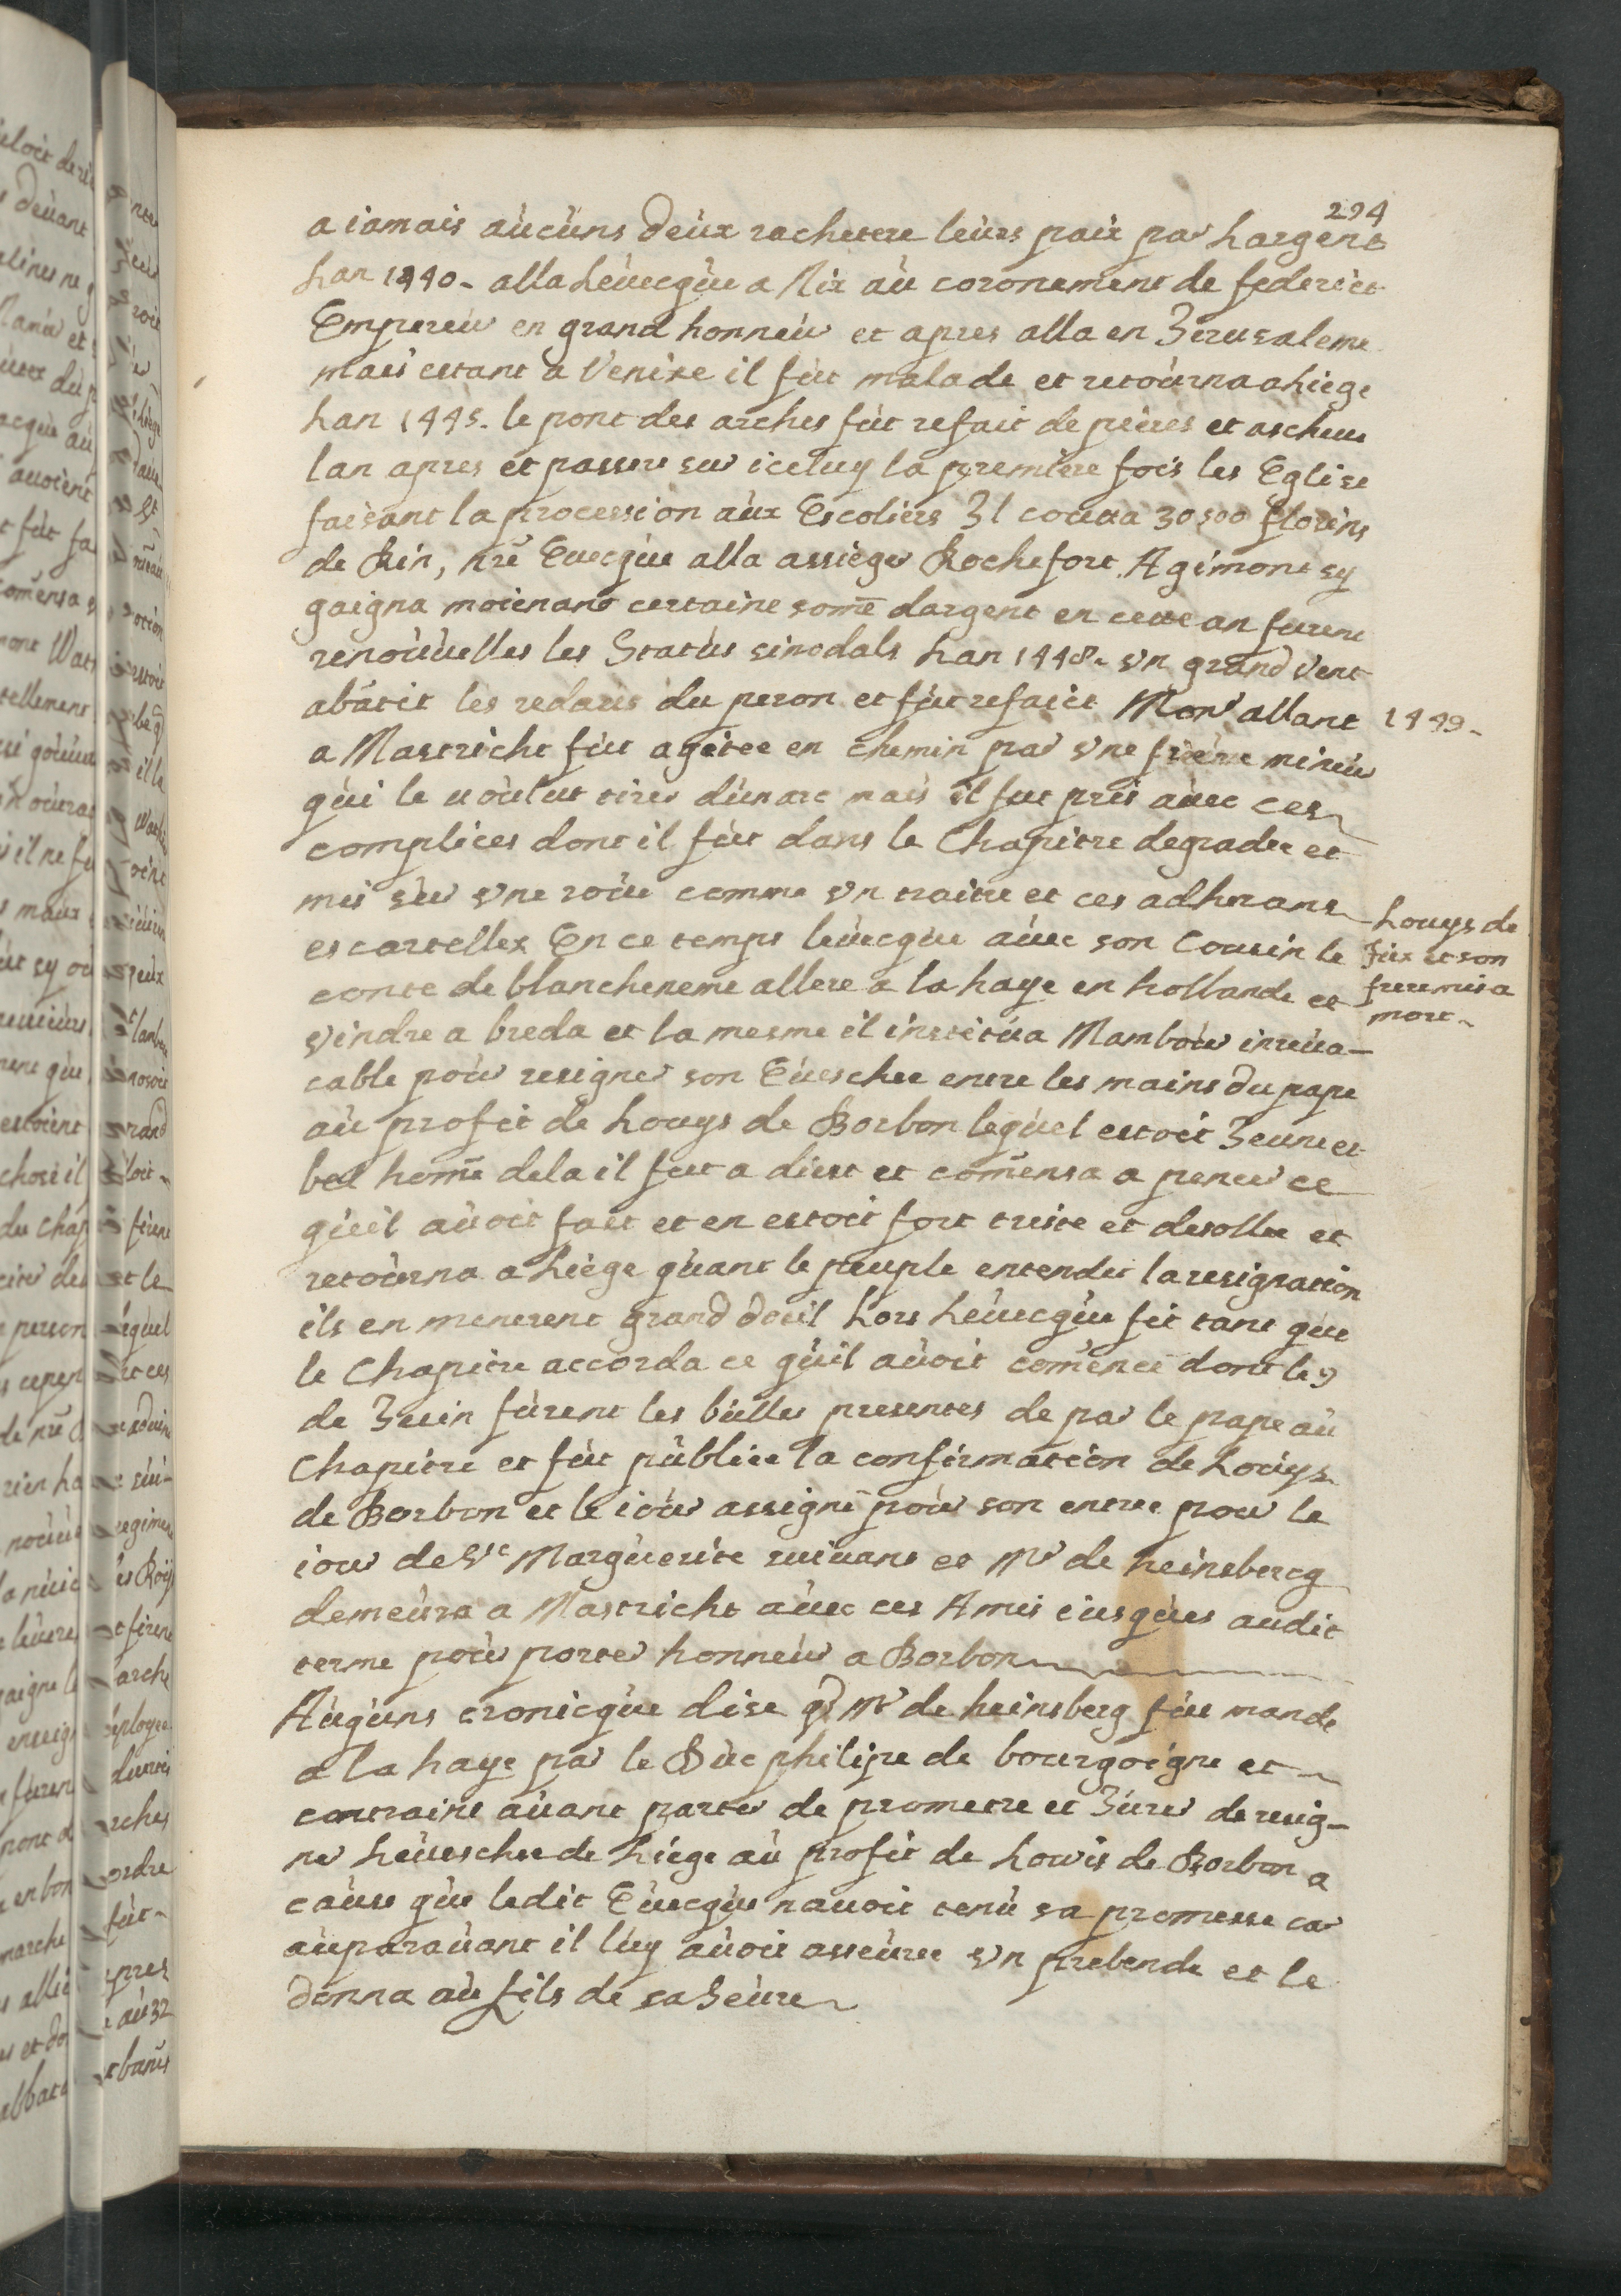 294
a iamais aucuns deux rachetere leurs paix par Largent
Lan 1440. alla Leuecque a Aix au coronement de federict
Empereur en grand honneur et apres alla en Jerusaleme
mais estant a Venise il fut malade et retourna a Liege
Lan 1445. le pont des arches fut refait de pieres et ascheue
lan apres et passere sur iceluy la premiere fois les Eglise
faisant la procession aux Escoliers Jl couta 30500 florins
de Rin, nr̄e Euecque alla assieger Rochefort Agimont sy
gaigna moienant certaine som̄e dargent en cette an furent
renouuelles les Status sinodals Lan 1448. vn grand vent
abatit les redaris du peron et fut refaict Monr allant
1449.
a Mastricht fut agitee en chemin par vne frere mineur
qui le uoulut tirer dun arc mais il fut pris auec ces
complices dont il fut dans le Chapitre degradee et
mis sur vne roue comme vn traitre et ces adherans
escartellez En ce temps leuecque auec son Cousin le
Louys de
Jux et son
frere mis a
mort.
conte de blancheneme allere a la haye en hollande et
vindre a breda et la mesme il institua Mambour irreua-
cable pour resigner son Eueschee entre les mains du pape
au profit de Louys de Borbon lequel estoit Jeune et
bel hom̄e dela il fut a diest et com̄ensa a penser ce
queil auoit fait et en estoit fort triste et desollee et
retourna a Liege quant le peuple entendit la resignation
ils en menerent grand deuil Lors Leuecque fit tant que
le Chapitre accorda ce quil auoit com̄ence dont le 9
de Juin furent les bulles presentes de par le pape au
Chapitre et fut publiee la confirmation de Louys
de Borbon et le iour assigne pour son entree pour le
iour de Ste Marguerite suiuant et Mr de heinsberg
demeura a Mastricht auec ces Amis iusques audit
terme pour porter honneur a Borbon
Auguns cronicque dise q̄ Mr de heinsberg fut mande
a la haye par le Duc philipe de bourgoigne et
contraint auant parter de prometre et Jurer de resig-
ner Leueschee de Liege au profit de Louis de Borbon a
cause que ledit Euecque nauoit tenu sa promesse car
auparauant il luy auoit asseuree vn prebende et le
donna au fils de sa seure